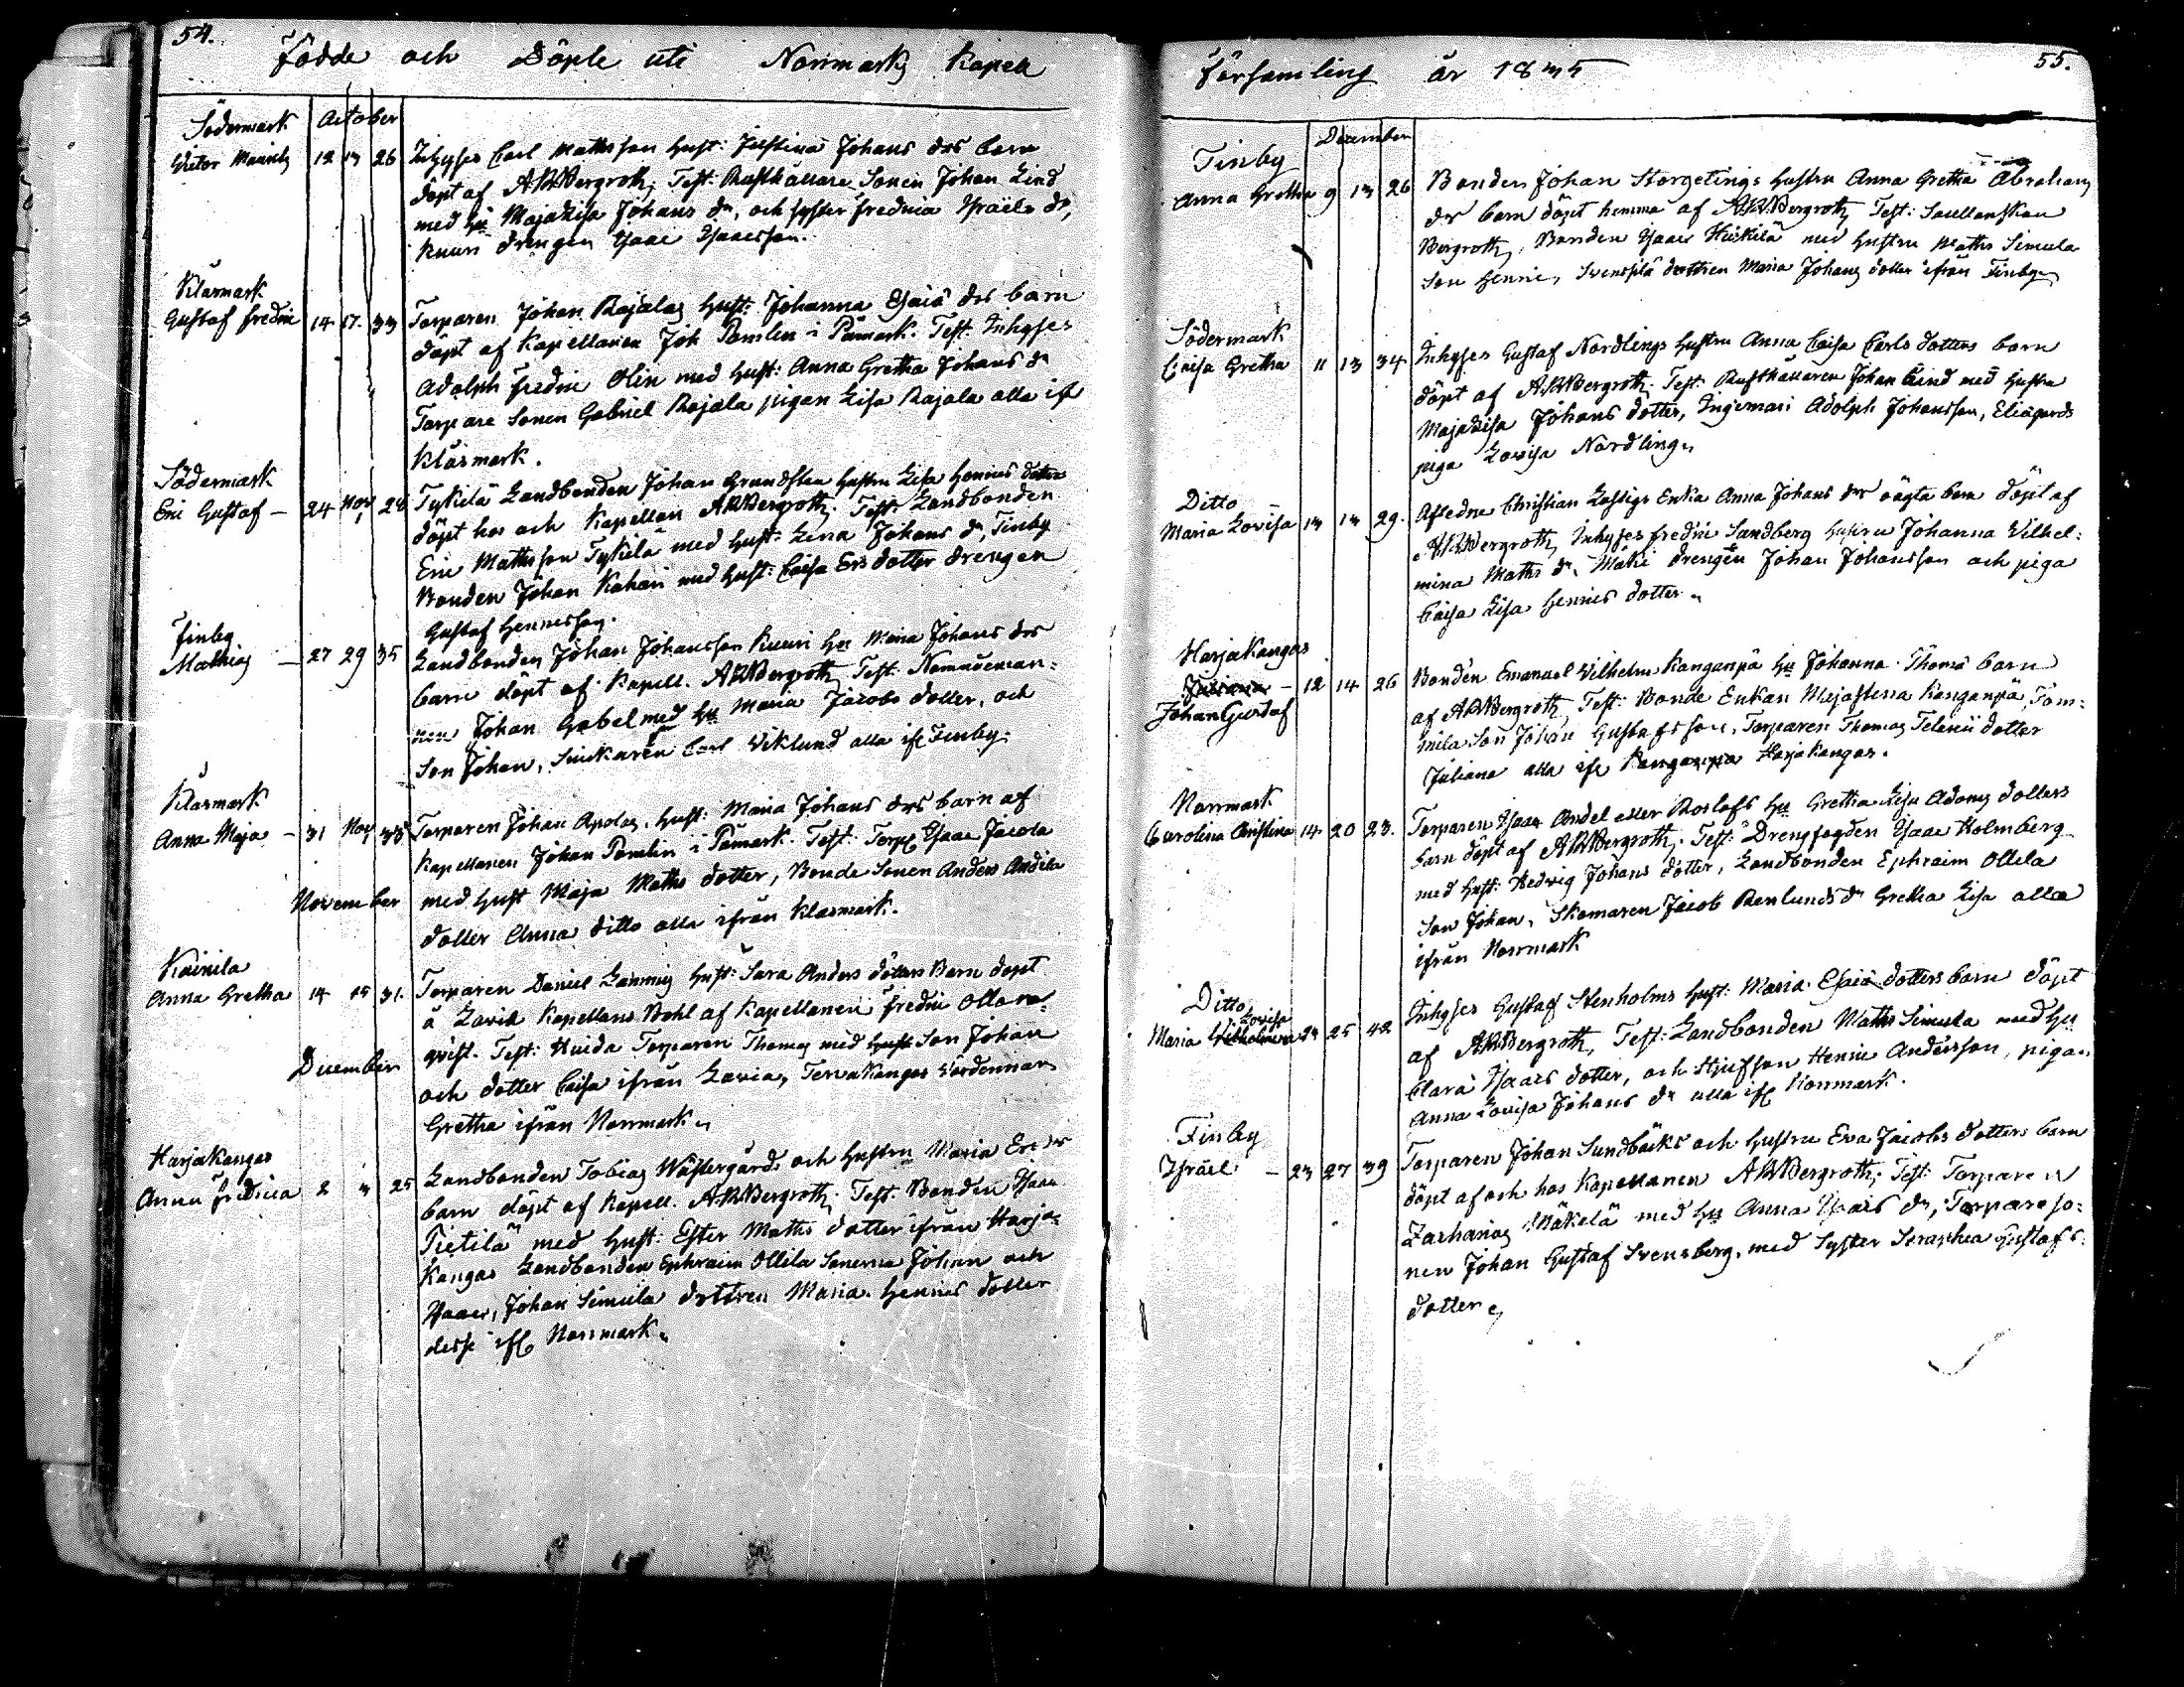 54.
Födde och Döpte uti Norrmarks Kapell
October
Södermark
Victor 12 13 26 Inhyses Carl Mattsson Hust: Justina Johans drs barn
döpt af ABBergroth, Test: Rusthållare Sonen Johan Lind
med Hu Maja Lisa Johans dr, och syster Fredrica Israels dr,
Kuuri drengen Isaac Isaacsson.
Klåsmark
Gustaf Fredric 14 17. 33 Torparen Johan Rajalas Hust: Johanna Esaiæ drs barn
döpt af Kapellanen Joh Pomlin i Påmark. Test. Inhyses
Adolph Fredric Olin med Hust: Anna Gretha Johans dr
Torpare Sonen Gabriel Rajala pigan Lisa Rajala alla ifr
Klåsmark.
Södermark
Eric Gustaf – 24 Nov 1 28 Tykilä Landbonden Johan Grundsten Hustru Lisa Henrics dotter
döpt hos och Kapellan ABBergroth. Test. Landbonden
Eric Mattsson Tykilä med Hust: Lena Johans dr, Finby
Bonden Johan Kahari med Hust: Caisa Ers dotter drengen
Gustaf Henricsson.
Finby
Mathias – 27 29 35 Landbonden Johan Johansson Kuuri Hu Maria Johans drs
barn döpt af Kapell. ABBergroth Test: Nämndeman-
nen Johan Gabel med Hu Maria Jacobs dotter, och
Son Johan, Snickaren Carl Viklund alla ifr Finby.
Klåsmark
Anna Maja – 31 Nov 35 Torparen Johan Apolas, Hust: Maria Johans drs barn af
Kapellanen Johan Pomlin i Påmark. Test: Torp Isaac Jacola
med Hust Maja Matts dotter, Bonde Sonen Anders Anders
dotter Anna ditto alla ifrån Klåsmark.
November
Kainila
Anna Gretha 14 15 31. Torparen Daniel Hust: Sara Anders dotters Barn döpt
å Lavia Kapellans Bohl af Kapellanen Fredric
qvist. Test: Torparen Thomas med Hust Son Johan
och dotter Caisa ifrån Lavia, Tervakangas
Gretha ifrån Norrmark
December
Harjakangas
Anna Fredrica 2 25 Landbonden Tobias Wästergårds och Hustru Maria Ers drs
barn döpt af Kapell. ABBergroth; Test. Bonden Isaac
Pietilä med Hust: Ester Matts dotter ifrån Harja-
kangas Landbonden Ephraim Ollila Sonerna Johan och
Isaac, Johan Simula dottren Maria Henrics dotter
desse ifr Norrmark.
Församling år 1835
55.
December
Finby
Anna Gretha 9 13 26 Bonden Johan Storgetings Hustru Anna Gretha Abrahams
dr barn döpt hemma af ABBergroth Test:
Bergroth, Bonden Isaac Heikilä med Hustru Matts Simula
Son Henric, dottren Maria Johans dotter ifrån Finby
Södermark
Caisa Gretha 11 13 34 Inhyses Gustaf Nordlings Hustru Anna Caisa Carls dotters barn
döpt af ABBergroth. Test. Rusthållaren Johan Lind med Hustru
Maja Lisa Johans dotter, Adolph Johansson,
piga Lovisa Nordling
Ditto
Maria Lovisa 13 13 29. Afledne Christian Enka Anna Johans drs oägta barn döpt af
ABBergroth, Inhyses Fredric Sandberg Hustru Johanna Vilhel-
mina Matts dr, Mäki drengen Johan Johansson och piga
Caisa Lisa Henrics dotter
Harjakangas
Juliana – 12 14 26 Bonden Emanuel Vilhelm Kanganpä Hu Johanna Thomæ barn
Johan Gustaf af ABBergroth, Test: Bonde Enkan Majastina Kanganpä, Tom-
mila Son Johan Gustafsson, Torparen Thomas dotter
Juliana alla ifr Kanganpä Harjakangas.
Norrmark
Carolina Christina 14 20 23. Torparen Isaac Andel eller Roslofs Hu Gretha Lisa Adams dotters
barn döpt af ABBergroth. Test: Drengfogden Isaac Holmberg
med Hust: Hedvig Johans dotter, Landbonden Ephraim Ollila
Son Johan, Skomaren Jacob Renlunds dr Gretha Lisa alla
ifrån Norrmark
Ditto
Lovisa
Maria Vilhelmina 24 25 42 Inhyses Gustaf Stenholms Hust: Maria Esaiæ dotters barn döpt
af ABBergroth, Test: Landbonden Matts Simula med Hu
Clara Isaacs dotter, och Styfson Henric Andersson, pigan
Anna Lovisa Johans dr alla ifr Norrmark.
Finby
Israel – 23 27 39 Torparen Johan Sundbäcks och Hustru Eva Jacobs dotters barn
döpt af och hos Kapellanen ABBergroth, Test: Torparen
Zacharias Mäkelä med Hu Anna Isaacs dr, Torpare so-
nen Johan Gustaf Svensberg, med Syster Seraphia Gustafs
dotter